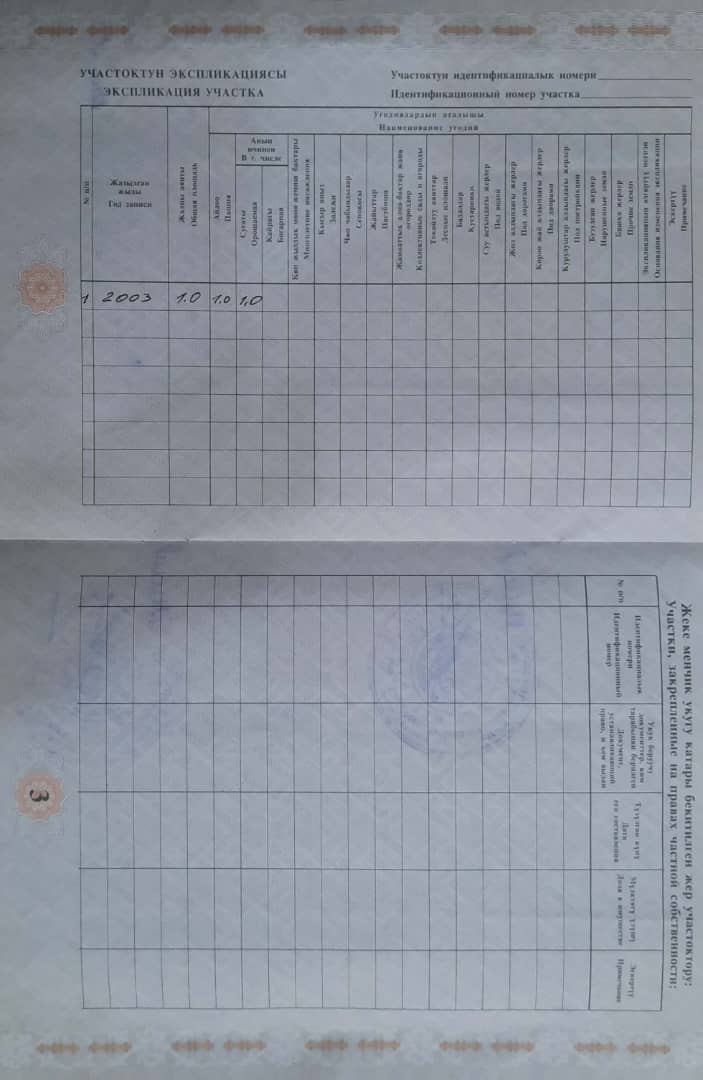 УЧАСТОКТУН ЭКСПЛИКАЦИЯСЫ
ЭКСПЛИКАЦИЯ УЧАСТКА
Участоктун идентификациалык номери
Идентификационный номер участка
№ п/п
Жазылган
жылы
Год записи
Жалпы аянты
Общая площадь
Угодиялардын аталышы
Наименование угодий
Айдоо
Пашня
Анын
ичинен
В т. числе
Сугаты
Орошаемая
Кайрагы
Богарная
Көп жылдык мөмө-жемиш бактары
Многолетние насаждения
Кысыр аңыз
Залежи
Чөп чабындылар
Сенокосы
Жайыттар
Пастбища
Жамааттык алма-бактар жана
огороддор
Коллективные сады и огороды
Токойлуу аянттар
Лесные площади
Бадалдар
Кустарники
Суу астындагы жерлер
Под водой
Жол алдындагы жерлер
Под дорогами
Короо жай алдындагы жерлер
Под дворами
Курулуштар алдындагы жерлер
Под постройками
Бузулган жерлер
Нарушенные земли
Башка жерлер
Прочие земли
Экспликациянын өзгөртүү негизи
Основания изменения экспликации
Эскертүү
Примечание
1 2003 1.0 1.0 1,0
Жеке менчик укугу катары бекитилген жер участоктору:
Участки, закрепленные на правах частной собственности:
№ п/п
Идентификациялык
номери
Идентификационный
номер
Укук берүүчү
документтер, ким
тарабынан берилген
Документ,
устанавливающий
право, и кем выдан
Түзүлгөн күнү
Дата
его составления
Мүлктөгү үлүшү
Доля в имуществе
Эскертүү
Примечание
3